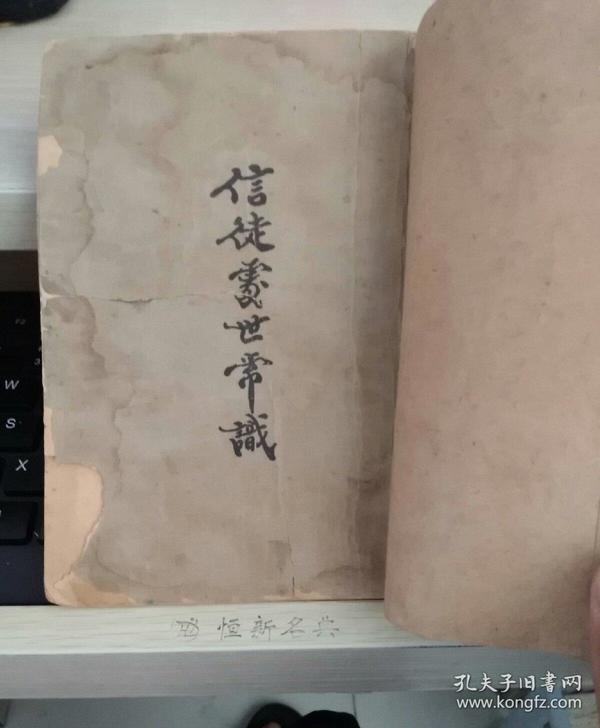 信徒處世常識
W
S
X
恒新名典
孔夫子旧書网
www.kongfz.com